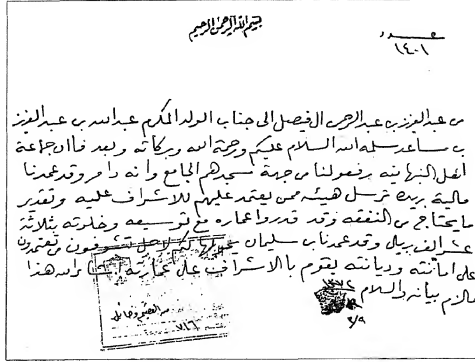 بسم الله الرحمن الرحيم
عدد
١٤٠١
من عبد العزيز بن عبد الرحمن الفيصل الى جناب الولد المكرم عبد الله بن عبد العزيز
بن مساعد سلمه الله السلام عليكم ورحمة الله وبركاته وبعد فاان جماعة
اهل النبهانيه رفعو لنا من جهة مسجدهم الجامع وانه دامر وقد عمدنا
مالية بريده ترسل هيئه ممن يعتمد عليهم للاشراف عليه وتقدير
ما يحتاج من النفقه وقد قدروا عماره مع توسيعه وخلوته بثلاثة
عشر الف ريال وقد عمدنا بن سليمان تشوفون من تعتمدون
على امانته وديانته يقوم بالاشراف على عمارته هذا
مالزم بيانه والسلام
١٣٧٢
٣/٩
٧١٦